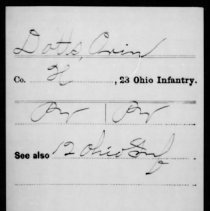 Dotts, Orin
Co. H, 23 Ohio Infantry.
Pvt | Pvt
See also 12 Ohio Inf